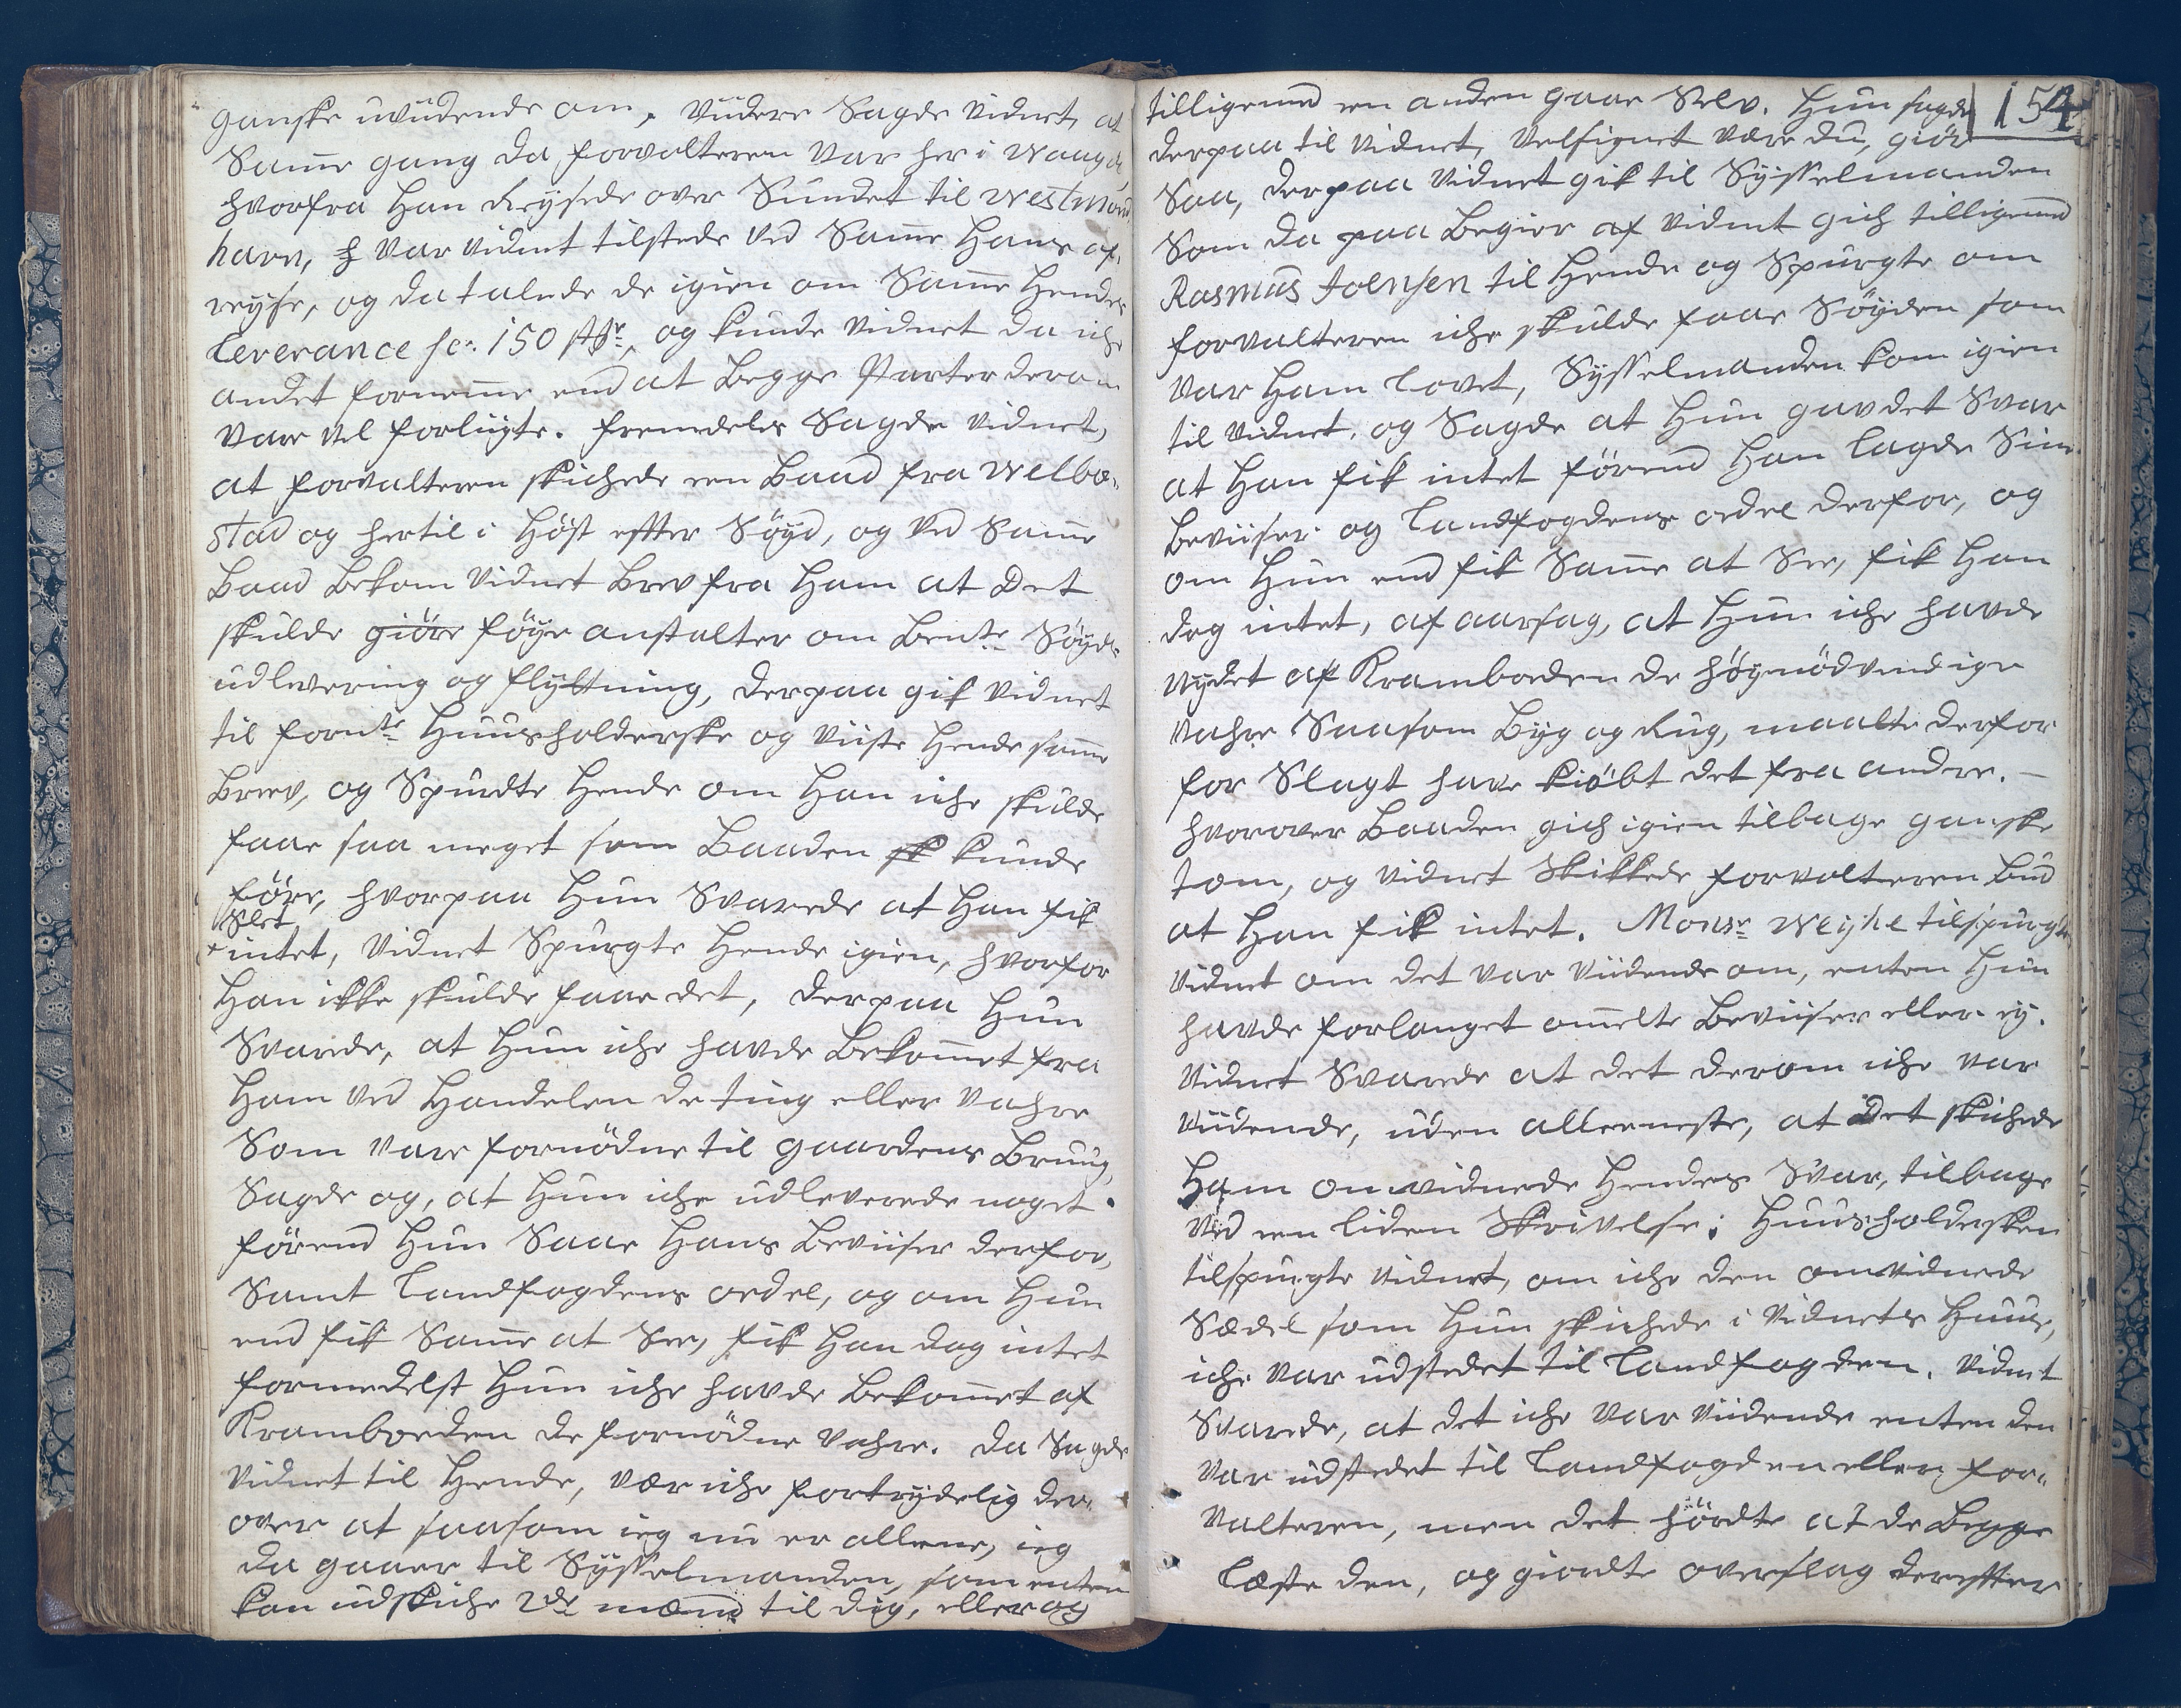 ganske uvidende om, Viidere Sagde Vidnet, at
Samme gang da forvalteren var her i Waage
hvorfra Han Reÿsede over Sundet til Westman
havn, var vidnet tilstede ved Samme Hans af,
reÿse, og da talede de igien om Samme Hendes
Leverance 150 og kunde Vidnet da iche
andet fornemme end at Begge Parter derom
vare vel forliigte. fremdeles Sagde vidnet,
at forvalteren skichede een Baad fra Welbe-
stad og hertil i Höst effter Söÿd, og ved Samme
Baad Bekom Vidnet Brev fra Ham at Det
skulde giöre föÿe anstalter om Bemte Söÿds
udlevering og flÿttning, derpaa gik Vidnet
til fornte Huusholderske og Viiste Hende samme
Brev, og Spurdte Hende om Han iche skulde
faae saa meget som Baaden sk kunde
före, hvorpaa Hun Svarede at Han fik
Slet
+ intet, Vidnet Spurgte Hende igien, hvorfor
Han ikke skulde faae det, derpaa Hun
Svarede, at Hun iche havde Bekommet fra
Ham ved Handelen de ting eller Vahre
Som vare fornödne til gaardens Bruug,
Sagde og, at Hun iche udleverede noget
förend Hun Saae Hans Beviiser derfor,
Samt Landfogdens ordre, og om Hun
end fik Samme at See, fik Han dog intet
formedelst Hun iche havde Bekommet af
Kramboeden de fornödne Vahre. Da Sagde
Vidnet til Hende, vær iche fortrÿdelig der-
over at saasom ieg nu er allene, ieg
da gaaer til Sÿsselmanden, som enten
kan udskiche 2de mænd til dig, eller og
154
tilligemed een anden gaae Selv. Hun sagde
derpaa til Vidnet, Velsignet være du, giör
Saa, derpaa Vidnet gik til Sÿsselmanden
Som da paa Begier af Vidnet gich tilligemed
Rasmus Joensen til Hende og Spurgte om
forvalteren iche skulde faae Söÿden som
var Ham lovet, Sÿsselmanden kom igien
til vidnet, og Sagde at Hun gav det Svar
at Han fik intet förend Han lagde Sine
Beviiser og Landfogdens ordre derfor, og
om Hun end fik Samme at See, fik Han
dog intet, af aarsag, at Hun iche havde
nÿdet af Kramboeden de höÿnödvendige
Vahre Saasom Bÿg og Rug, maatte derfor
for Slagt have kiöbt det fra andre. —
hvorover Baaden gich igien tilbage ganske
tom, og Vidnet Skikkede forvalteren Bud
at Han fik intet. Monsr Weÿhe tilspurgte
Vidnet om det var Viidende om, enten Hun
havde forlanget ommelte Beviiser eller eÿ.
Vidnet Svarede at det derom iche var
viidende, uden alleeneste, at Det skichede
Ham omvidnede Hendes Svar, tilbage
ved een liden Skrivelse; Huusholdersken
tilspurgte Vidnet, om iche den omvidnede
Sædel som Hun skichede i Vidnets Huus,
iche var udstedet til Landfogden. Vidnet
Svarede, at det iche var viidende enten den
var udstedet til Landfogden eller for-
valteren, men det hördte at de Begge
læste den, og giordte overslag dereffter